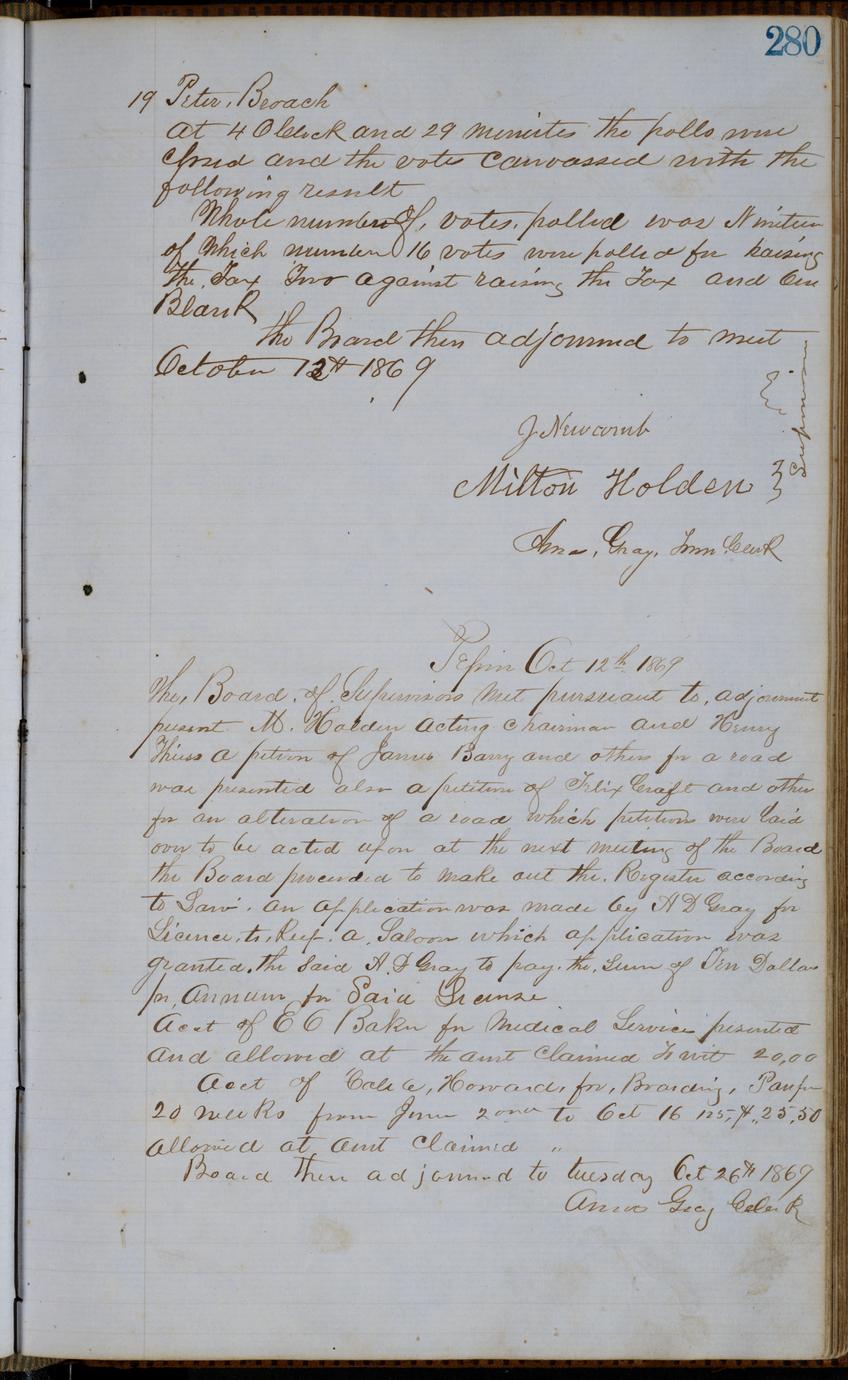 280
19 Peter, Broach
At 4 Oclock and 29 minutes the polls were
closed and the votes canvassed with the
following result
Whole number of, votes, polled was Nineteen
of which number 16 votes were polled for raising
the, Tax Two against raising the Tax and One
Blank
the Board then adjourned to meet
October 12th 1869
J Newcomb
Milton Holden
Supervisors
Amos, Gray, Town Clerk
Pepin Oct 12th 1869
The, Board, of, Supervisors met pursuant to, adjournment
present M. Holden acting chairman and Henry
Thiess a petion of James Barry and others for a road
was presented also a petition of Felix Craft and other
for an alteration of a road which petitions were laid
over to be acted upon at the next meeting of the Board
the Board proceeded to make out the. Register according
to Law. an application was made by A D Gray for
Licence, to, Keep. a, Saloon which application was
granted. the said A. D Gray to pay. the. Sum of Ten Dollars
pr, Annum, for Said License
Acct of E C Baker for Medical Service presented
and allowed at the amt claimed to wit 20,00
Acct of Howard, for, Boarding, Pauper
20 weeks from June 2ond to Oct 16 25,50
allowed at amt claimed "
Board then adjourned to tuesday Oct 26th 1869
Amos Gray Clerk